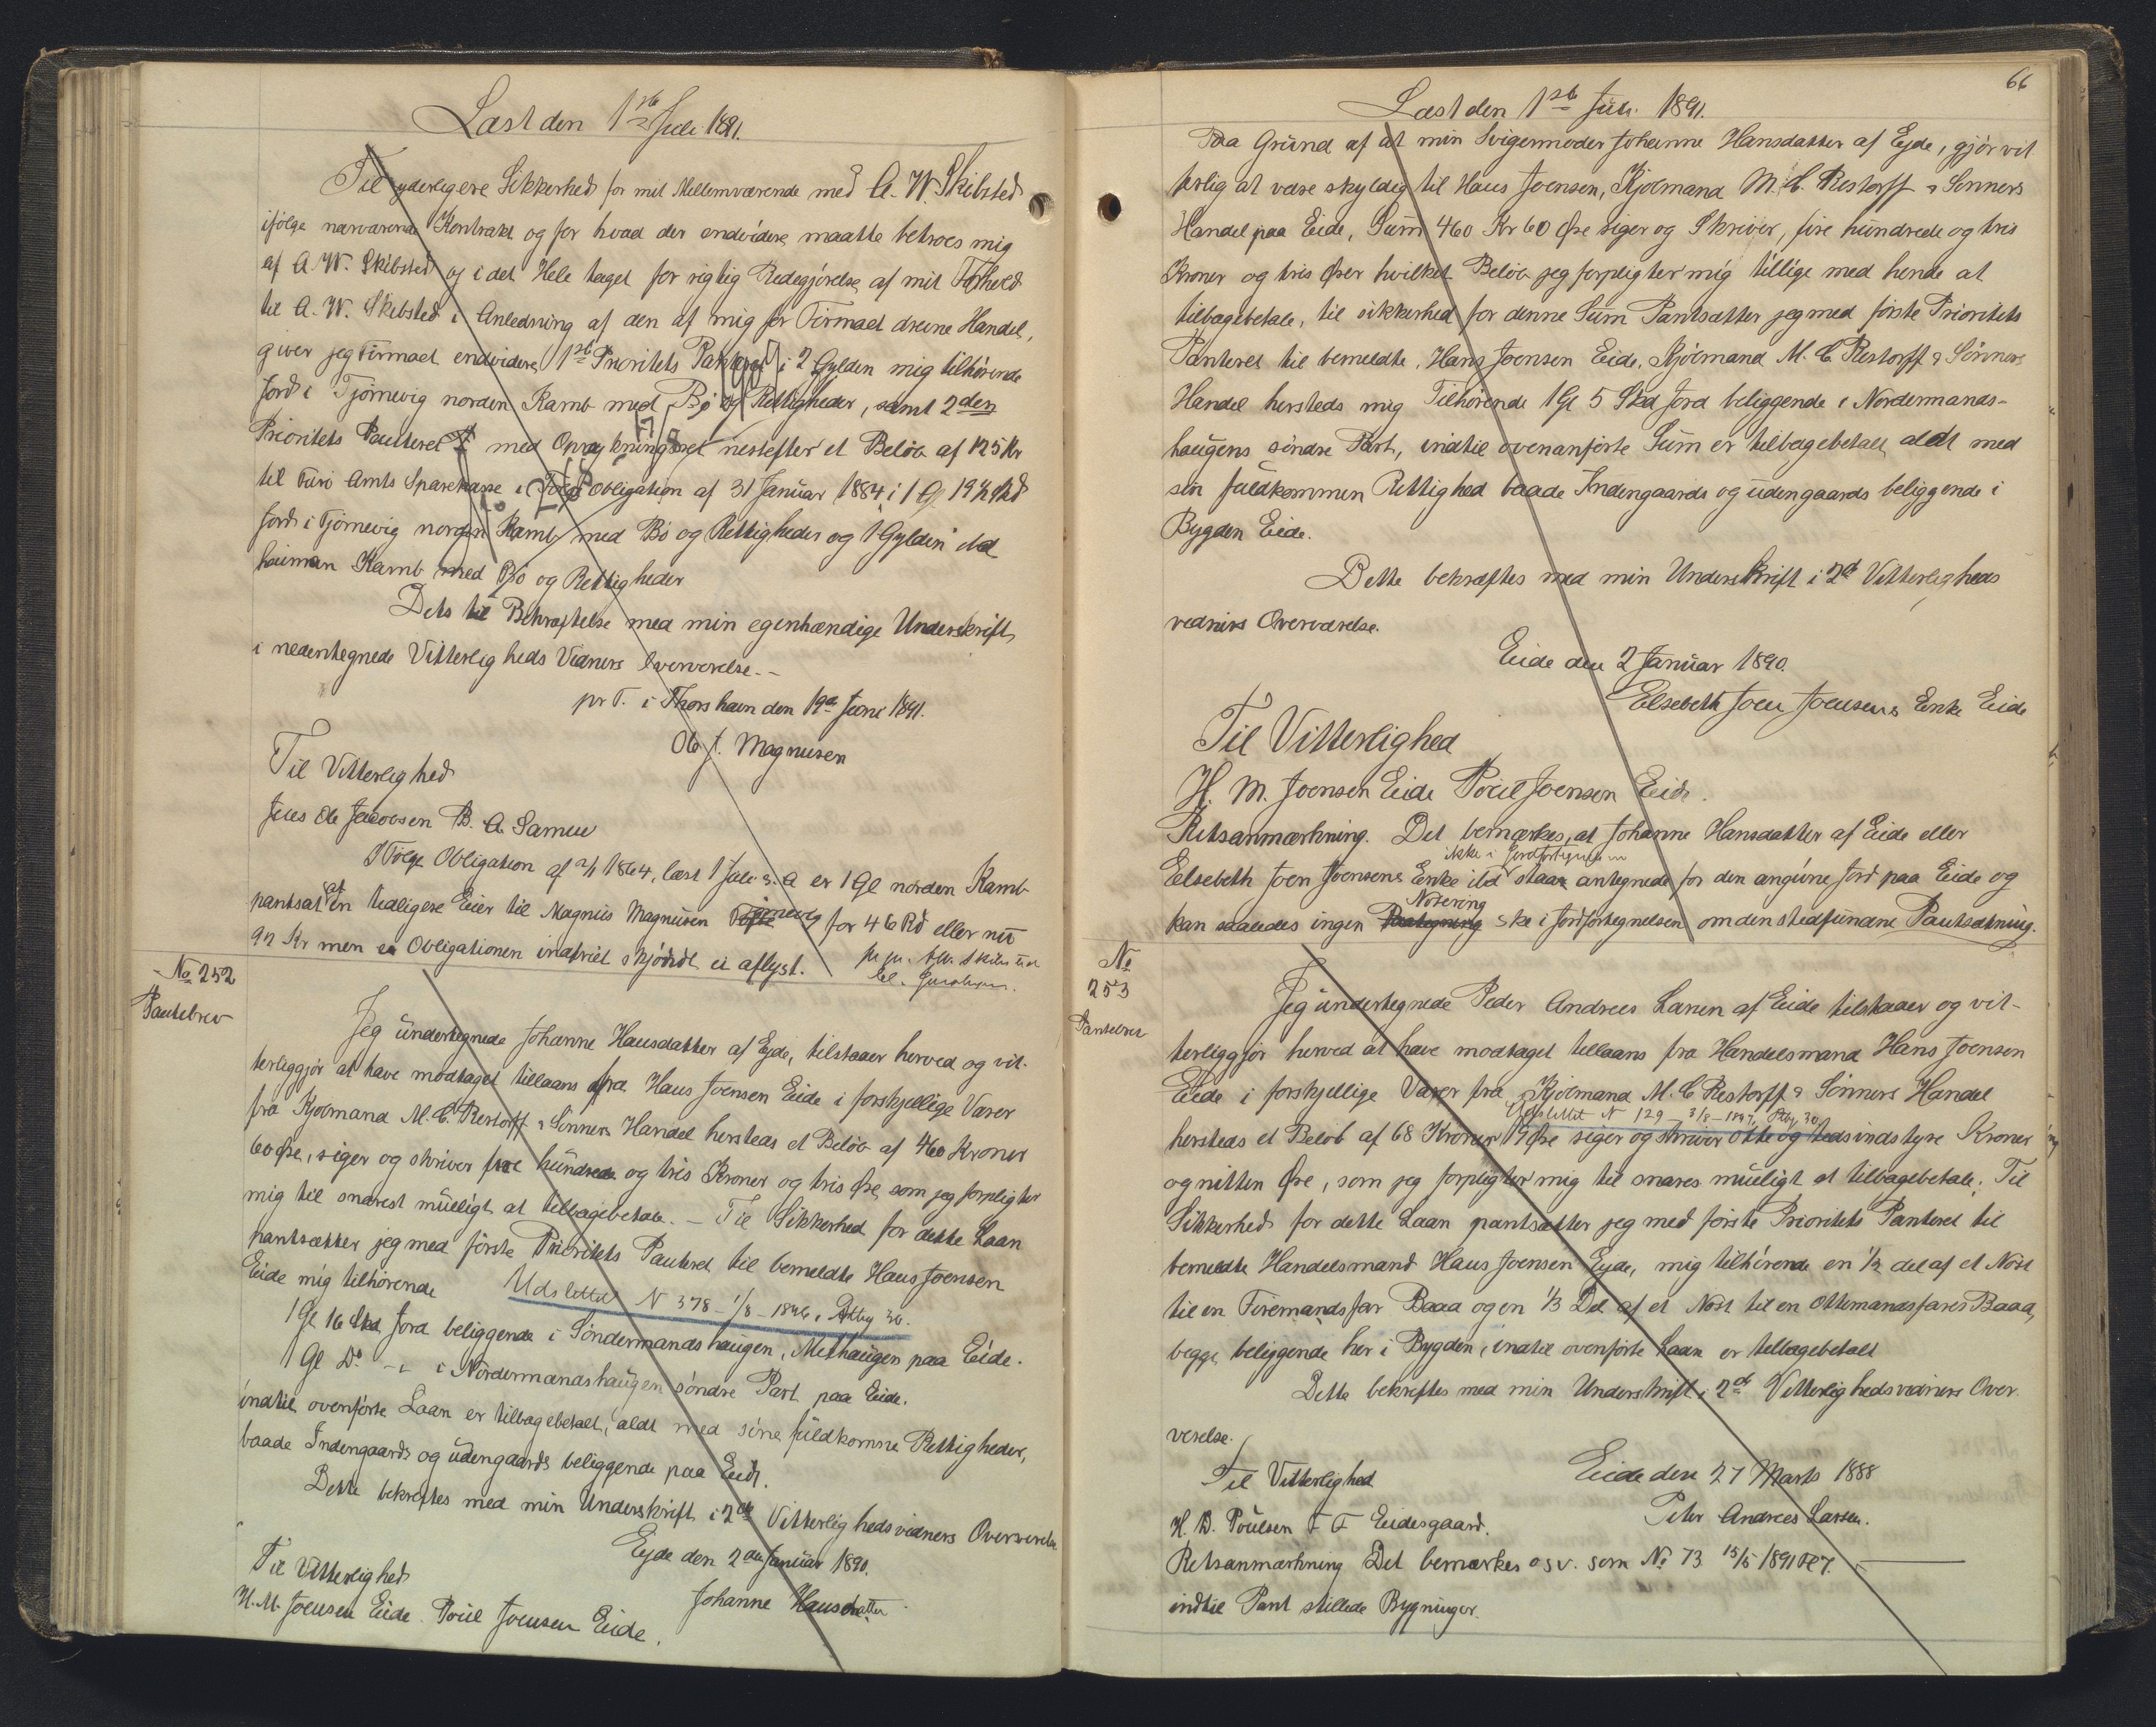 Læst den 1ste Juli 1891.
Til yderligere Sikkerhed for mit Mellemværende med A. W. Skibsted
ifölge nærværende Kontrakt og for hvad der endvidere maatte betroes mig
af A. W. Skibsted og i det Hele taget for rigtig Redegjörelse af mit Forhold
til A. W. Skibsted i Anledning af den af mig for Firmaet drevne Handel,
giver jeg Firmaet endvidere 1ste Prioritets Panteret i 2 Gylden mig tilhörende
Jord i Tjörnevig norden Kamb med Bö og Rettigheder, samt 2den
Prioritets Panteret med Oprykningsret næstefter et Belöb af 125 Kr
til Færö Amts Sparekasse i Fölge Obligation af 31 Januar 1884 i 1 Gl 19½ Skd
Jord i Tjörnevig norden Kamb med Bö og Rettigheder og 1 Gylden
heiman Kamb med Bö og Rettigheder
Dets til Bekræftelse med min egenhændige Underskrift
i nedentegnede Vitterligheds Vidners Overværelse.-
pr T. i Thorshavn den 19de Juni 1891.
Ole J. Magnusen
Til Vitterlighed
Jens Ole Jacobsen B. A. Samu
I Fölge Obligation af 2/1 1864, læst 1 Juli s. A er 1 Gl norden Kamb
pantsat af en tidligere Eier til Magnus Magnusen Tjörnevig for 46 Rd eller nu
92 Kr men er Obligationen indfriet skjöndt ei aflyst.
No 252
Pantebrev
Jeg undertegnede Johanne Hansdatter af Ejde, tilstaaer herved og vit-
terliggjör at have modtaget tillaans fra Hans Joensen Eide i forskjellige Varer
fra Kjöbmand M. C. Restorff & Sönners Handel hersteds et Belöb af 460 Kroner
60 Öre, siger og skriver fire hundrede og tris Kroner og tris Öre, som jeg forpligter
mig til snarest mueligt at tilbagebetale. - Til Sikkerhed for dette Laan
pantsætter jeg med förste Prioritets Panteret til bemeldte Hans Joensen
Eide mig tilhörende
Udslettet N 378 - 1/8 - 1896.
1 Gl 16 Skd Jord beliggende i Söndermandshaugen, Methaugen paa Eide.
1 Gl Do - i Nordermandshaugen söndre Part paa Eide.
indtil ovenförte Laan er tilbagebetalt, aldt med sine fuldkomne Rettigheder,
baade Indengaards og udengaards beliggende paa Eide.
Dette bekræftes med min Underskrift i 2de Vitterlighedsvidners Overværelse
Ejde den 2den Januar 1890.
Til Vitterlighed
Johanne Hansdatter
H. M. Joensen Eide. Poul Joensen Eide.
66
Læst den 1ste Juli 1891.
Paa Grund af at min Svigermoder Johanne Hansdatter af Ejde, gjör vit
terlig at være skyldig til Hans Joensen, Kjöbmand M. C. Restorff & Sönners
Handel paa Eide, Sum 460 Kr 60 Öre siger og Skriver, fire hundrede og tris
Kroner og tris Örer hvilket Belöb jeg forpligter mig tillige med hende at
tilbagebetale, til sikkerhed for denne Sum Pantsætter jeg med förste Prioritets
Panteret til bemeldte, Hans Joensen Eide, Kjöbmand M. C. Restorff & Sönners
Handel hersteds mig Tilhörende 1 Gl 5 Skd Jord beliggende i Nordermands-
haugens söndre Part, indtil ovenanförte Sum er tilbagebetalt aldt med
sin fuldkommen Rettighed baade Indengaards og udengaards beliggende i
Bygden Eide.
Dette bekræftes med min Underskrift i 2de Vitterligheds
vidners Overværelse.
Eide den 2 Januar 1890.
Elsebeth Joen Joensens Enke Eide
Til Vitterlighed
H. M. Joensen Eide Poul Joensen Eide.
Retsanmærkning. Det bemærkes, at Johanne Hansdatter af Eide eller
ikke i Jordfortegnelsen
Elsebeth Joen Joensens Enke ibd staar antegnede for den angivne Jord paa Eide og
Notering
kan saaledes ingen Paategning ske i Jordfortegnelsen om den stedfundne Pantsætning.
No
253
Pantebrev
Jeg undertegnede Peder Andreas Larsen af Eide tilstaaer og vit-
terliggjör herved at have modtaget tillaans fra Handelsmand Hans Joensen
Eide i forskjellige Varer fra Kjöbmand M. C. Restorff & Sönners Handel
Udslettet N 129 - 3/8 - 1897,
hersteds et Belöb af 68 Kroner 19 Öre siger og skriver otte og tredsindstyve Kroner
og nitten Öre, som jeg forpligter mig til snares mueligt at tilbagebetale; Til
Sikkerhed for dette Laan pantsætter jeg med förste Prioritets Panteret til
bemeldte Handelsmand Hans Joensen Ejde, mig tilhörende en ½ del af et Nöst
til en Firemandsfar Baad og en 1/3 Del af et Nöst til en Ottemandsfares Baad,
begge beliggende her i Bygden, indtil ovenförte Laan er tilbagebetalt
Dette bekræftes med min Underskrift i 2de Vitterlighedsvidners Over-
værelse.
Til Vitterlighed
Eide den 27 Marts 1888
H. D. Poulsen F F Eidesgaard.
Peter Andreas Larsen.
Retsanmærkning Det bemærkes osv. som No 73 15/5 1891
indtil Pant stillede Bygninger.